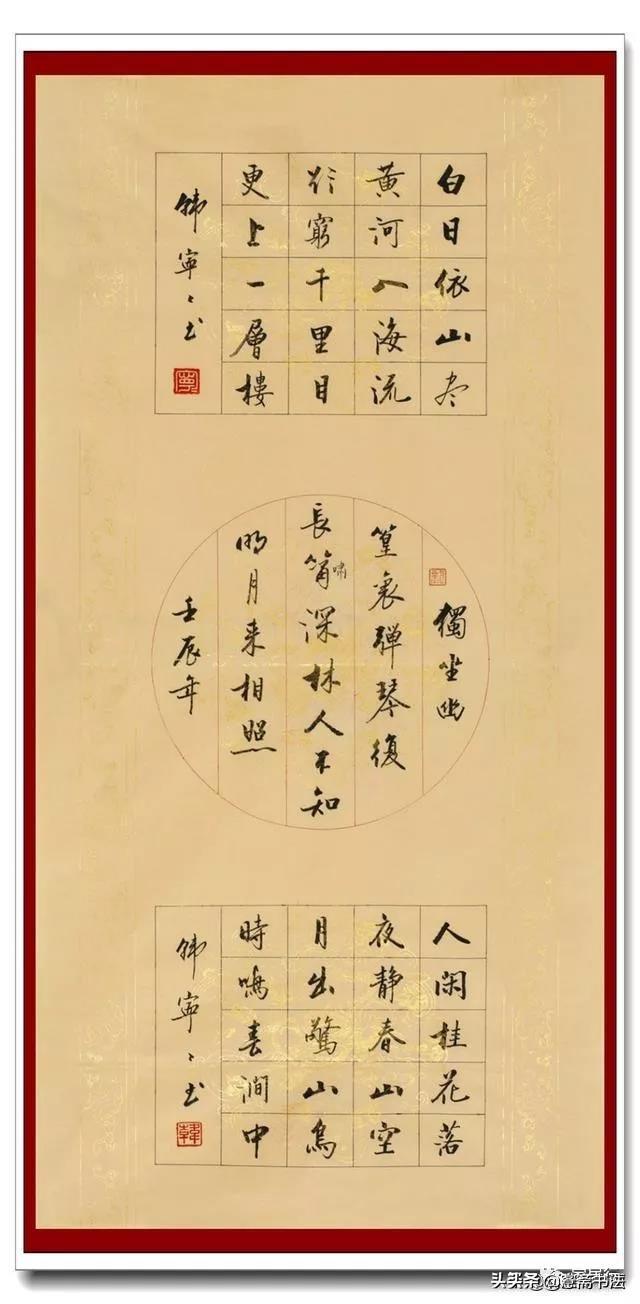 白日依山尽
黄河入海流
欲窮千里目
更上一層樓
韩寧〻书
寧
獨坐幽
篁裏弹琴復
長嘯深林人不知
明月来相照
壬辰年
人闲桂花落
夜静春山空
月出驚山鳥
時鳴春澗中
韩寧〻书
韓